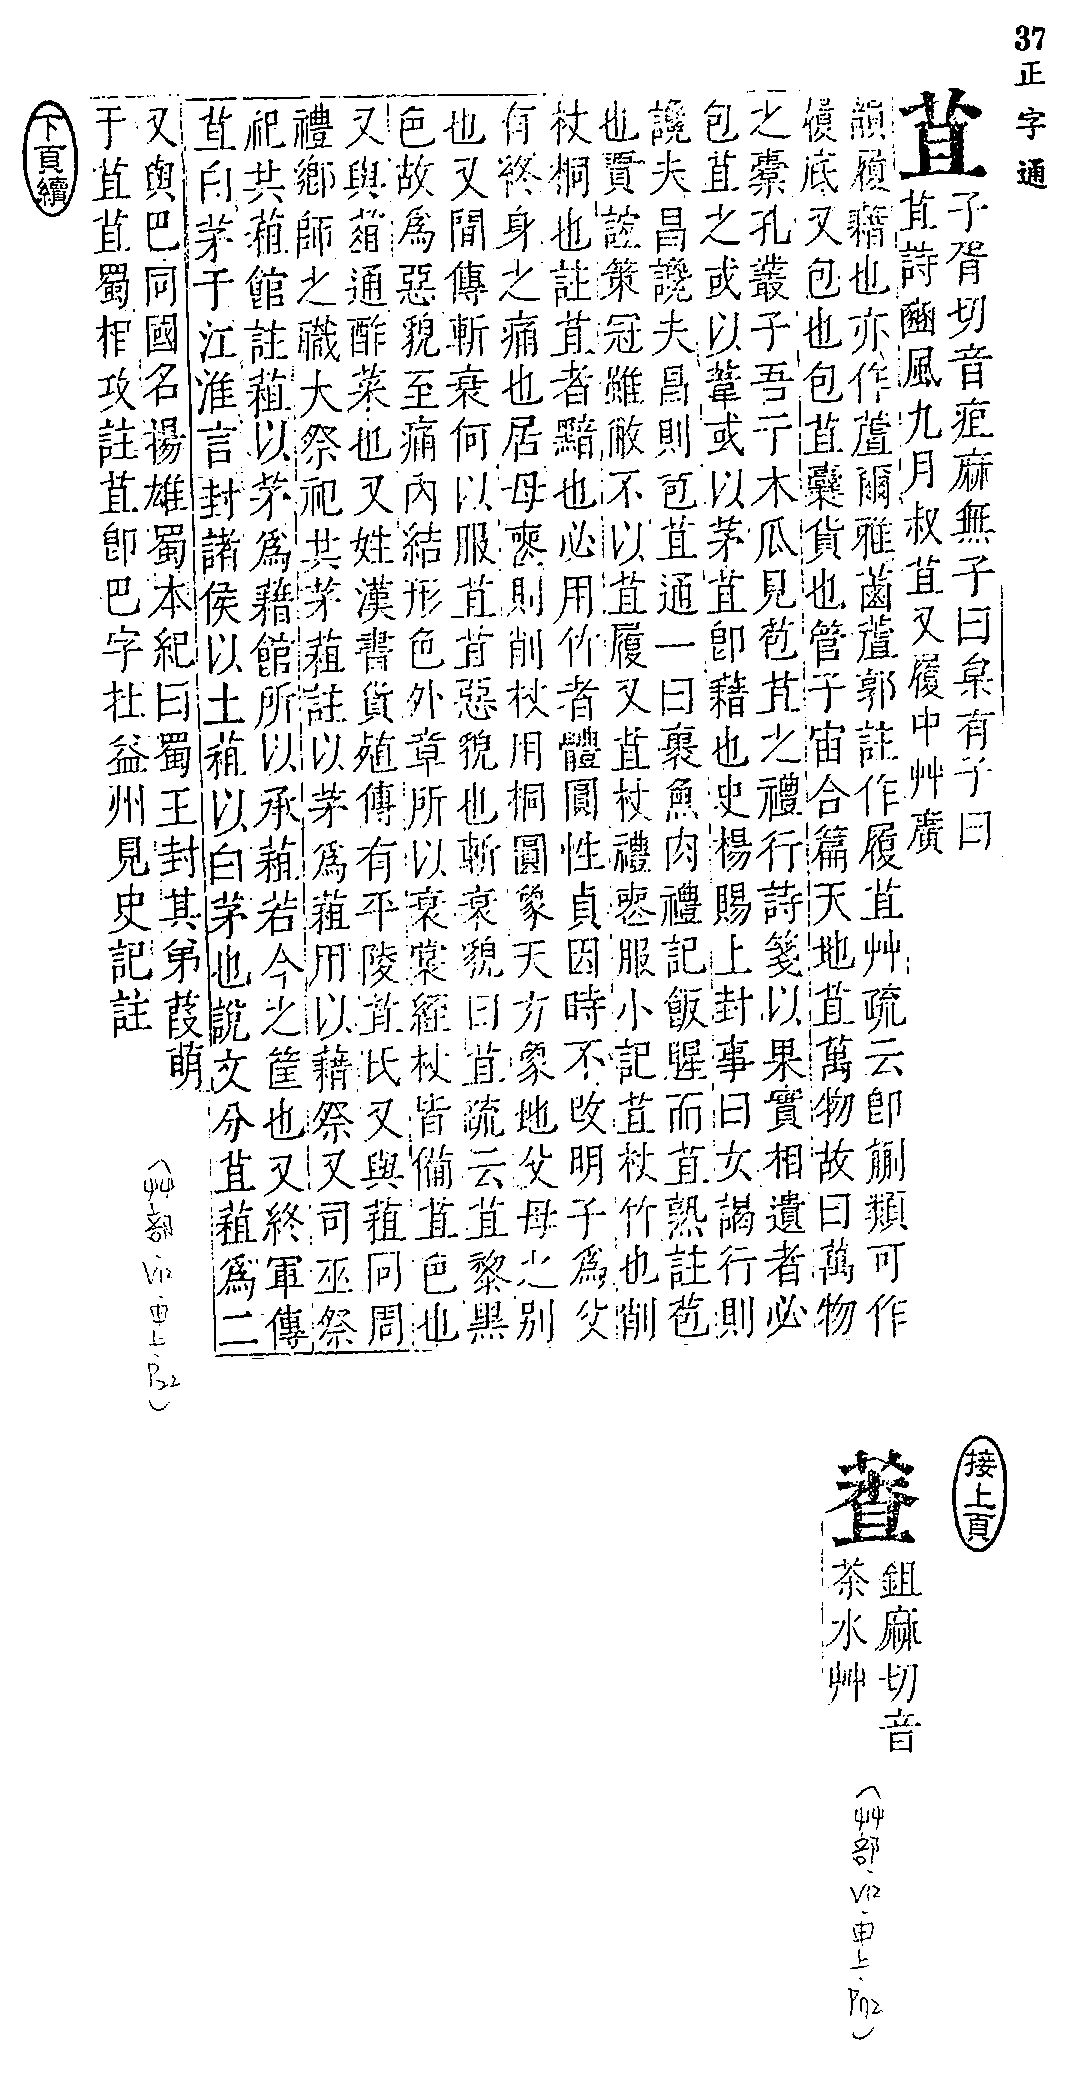 37正字通
苴
子胥切音疽麻無子曰枲有子曰
苴詩豳風九月叔苴又履中艸廣
韻履藉也亦作蒩爾雅菡蒩郭註作履苴艸疏云卽蒯類可作
履底又包也包苴囊貨也管子宙合篇天地苴萬物故曰萬物
之橐孔叢子吾于木瓜見苞苴之禮行詩箋以果實相遺者必
包苴之或以葦或以茅苴卽藉也史楊賜上封事曰女謁行則
讒夫昌讒夫昌則苞苴通一曰裹魚肉禮記飯腥而苴熟註苞
也賈誼策冠雖敝不以苴履又苴杖禮喪服小記苴杖竹也削
杖桐也註苴者黯也必用竹者體圓性貞因時不改明子爲父
有終身之痛也居母喪則削杖用桐圓象天方象地父母之別
也又間傳斬衰何以服苴苴惡貌也斬衰貌曰苴疏云苴黎黑
色故爲惡貌至痛內結形色外章所以衰裳絰杖皆備苴色也
又與菹通酢菜也又姓漢書貨殖傳有平陵苴氏又與蒩同周
禮鄉師之職大祭祀共茅蒩註以茅爲蒩用以藉祭又司巫祭
祀共蒩館註蒩以茅爲藉館所以承蒩若今之筐也又終軍傳
苴白茅于江淮言封諸侯以土蒩以白茅也說文分苴蒩爲二
又與巴同國名揚雄蜀本紀曰蜀王封其弟葭萌
于苴苴蜀相攻註苴卽巴字杜益州見史記註
(艸部、V12、申上、P22)
下頁續
接上頁
鉏麻切音
茶水艸
(艸部、V12、申上、P72)